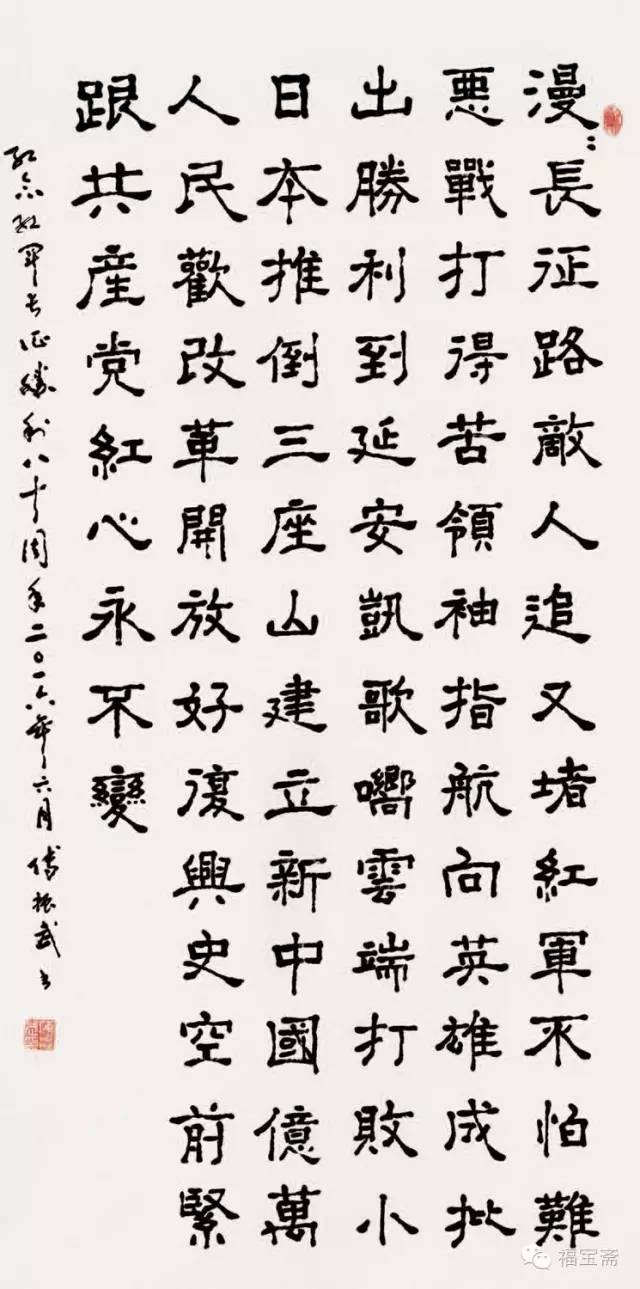 漫〻長征路敵人追又堵紅軍不怕難
惡戰打得苦領袖指航向英雄成批
出勝利到延安凱歌嚮雲端打敗小
日本推倒三座山建立新中國億萬
人民歡改革開放好復興史空前緊
跟共産党紅心永不變
紀念红军长征勝利八十周年二〇一六年六月傅振武书
福宝斋